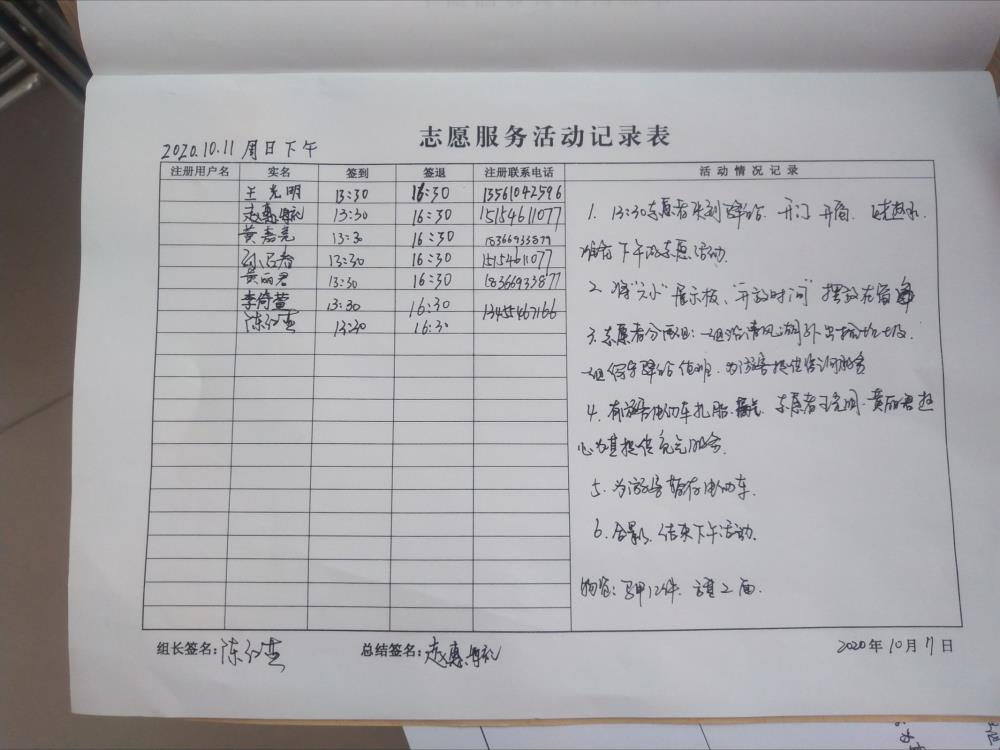 志愿服务活动记录表
2020.10.11 周日下午
注册用户名 实名 签到 签退 注册联系电话 活动情况记录
王光明 13:30 16:30 13561042596
赵惠 13:30 16:30 15154611077
黄嘉亮 13:30 16:30 18366933877
13:30 16:30 15154611077
黄丽君 13:30 16:30 18366933877
李倚萱 13:30 16:30 13455467166
陈红 13:30 16:30
1. 13:30志愿者来到驿站. 开门 开窗.
准备下午的志愿活动.
2. 将 展示板、"开放时间" 摆放在窗
3. 志愿者分两组: 一组沿清风湖外出捡垃圾.
一组保守驿站值班. 为游客提供咨询服务
4. 有游客电动车扎胎 志愿者王光明.黄丽君热
心为其提供充气服务.
5. 为游客暂存电动车.
6. 合影. 结束下午活动.
物资: 马甲12件. 2面.
组长签名: 陈红 总结签名: 赵惠
2020年10月 日